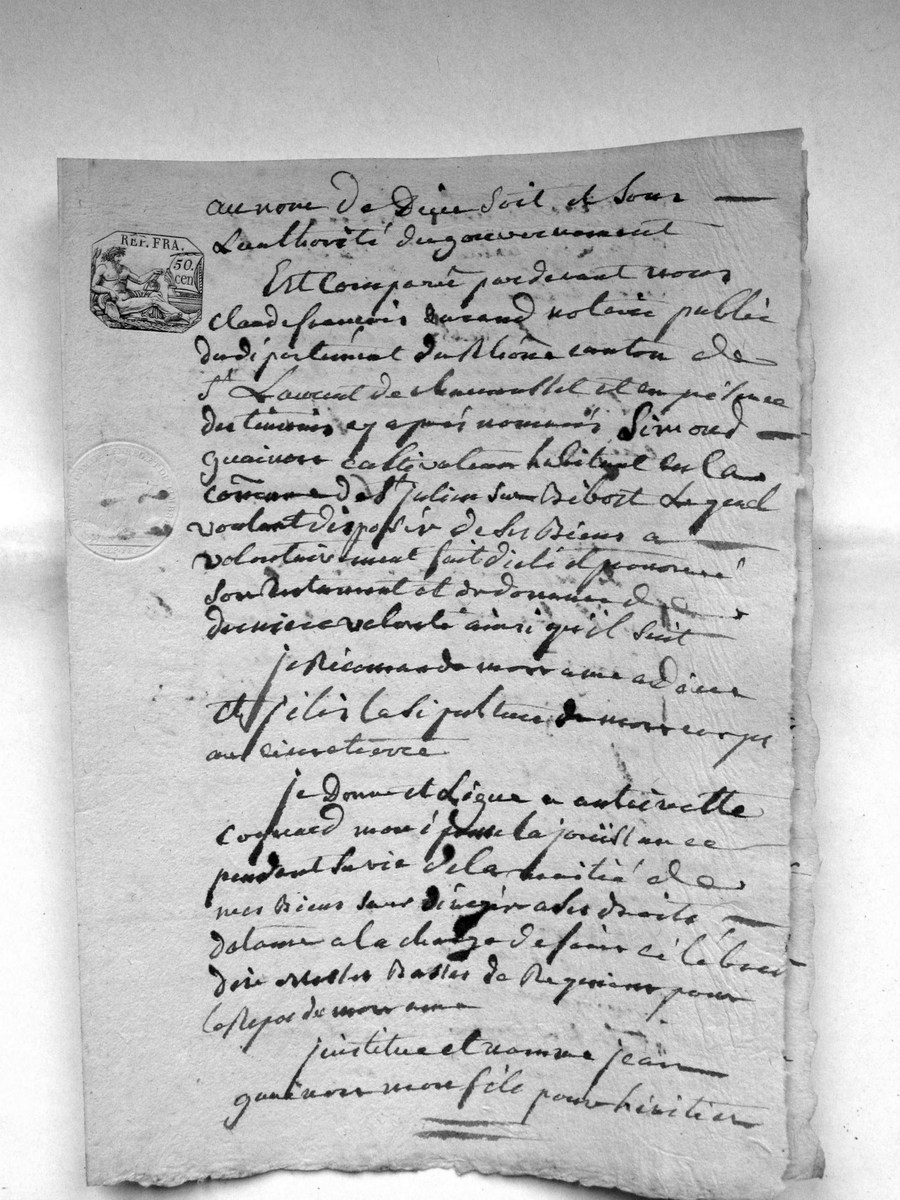 REP. FRA.
50.
cen
au nom de Dieu soit et sous
Lauthorité du gouvernement
Est comparu pardevant nous
claude francois Durand notaire public
du département du Rhône canton de
St Laurent de chamousset et en présence
des témoins cy après nommés Simond
guainon cultivateur habitant en la
commune de St Julien sur Bibost Lequel
voulant disposér de ses Biens a
volontairement fait dicté et prononcé
son testament et ordonnance de
derniere volonté ainsi qu'il suit
je Récomande mon ame a dieu
et la sépulture de mon corps
au cimetierre
je Donne et Légue a antoinette
cognard mon épouse la jouissance
pendant sa vie de la moitié de
mes Biens sans a ses droits
a la charge de faire célébrér
dix Messes Basses de Requiem pour
le Repos de mon ame
j'institue et nomme jean
guainon mon fils pour héritier